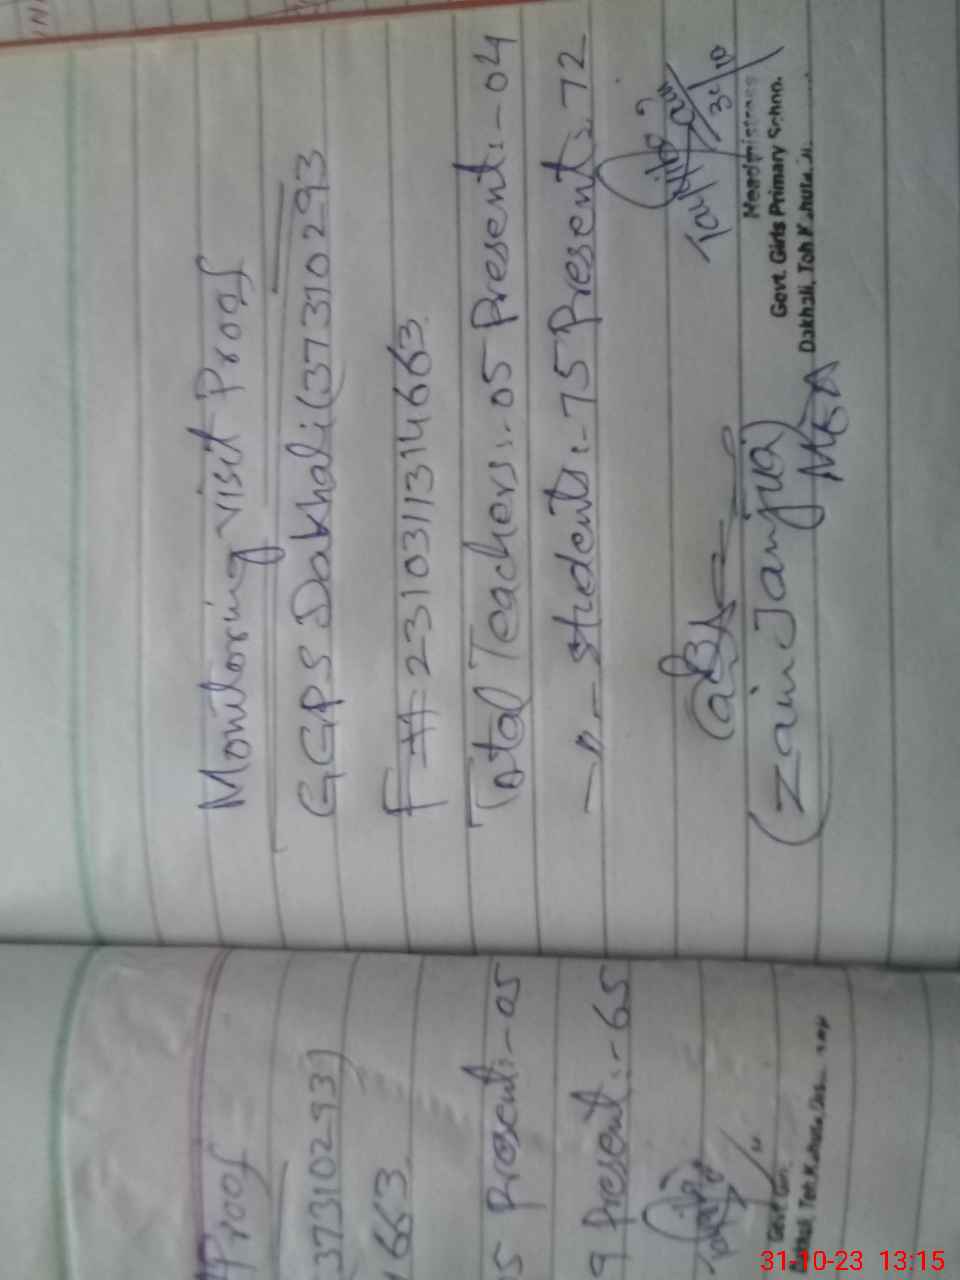 Monitoring visit Proof
GGPS Dakhali (37310293
F # 2310311314663
Total Teachers:- 05 Present:- 04
-"- students:- 75 Present:- 72
(Zain Janjua)
MEA
31/10
Headmistress
Govt. Girls Primary School
Dakhali, Teh Kahuta
Proof
37310293)
663
5 Present:- 05
9 Present:- 65
Govt Girl
Dakhali, Teh Kahuta
31-10-23 13:15